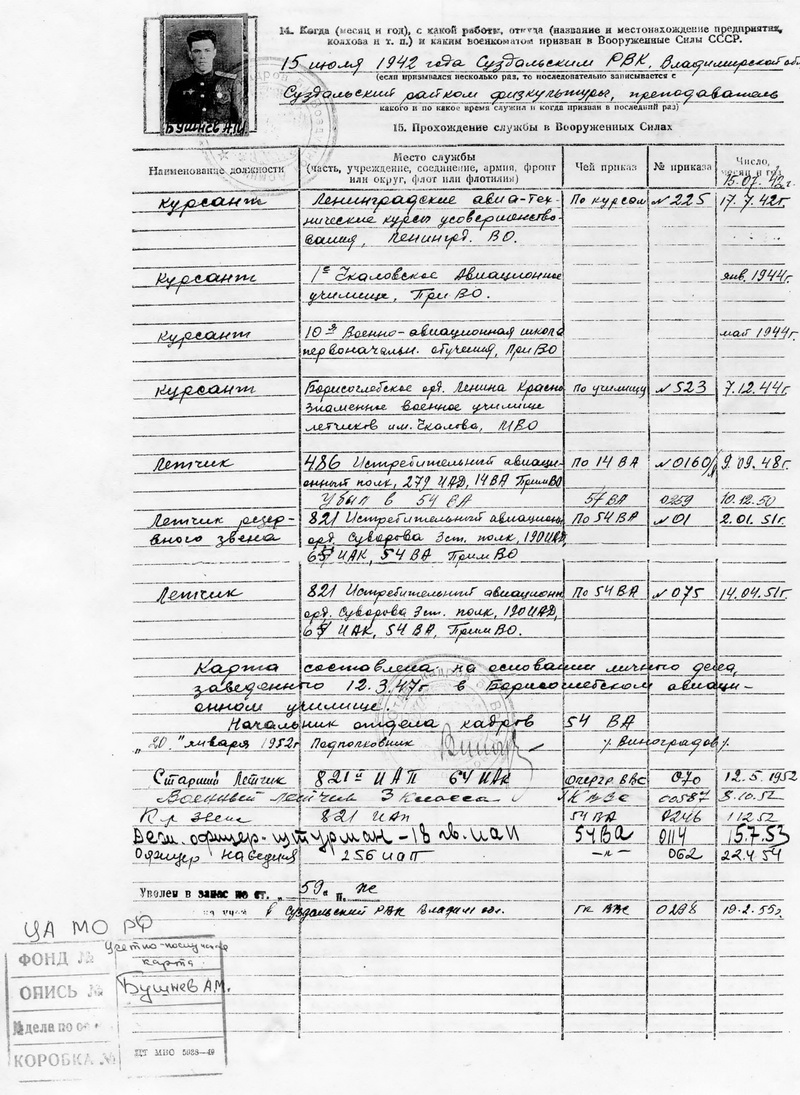 14. Когда (месяц и год), с какой работы, откуда (название и местонахождение предприятия, колхоза и т. п.) и каким военкоматом призван в Вооруженные Силы СССР.
15 июля 1942 года Суздальским РВК, Владимирской об
(если призывался несколько раз, то последовательно записывается с
Суздальский райком физкультуры, преподаватель
какого и по какое время служил и когда призван в последний раз)
Бушнев А.М.
15. Прохождение службы в Вооруженных Силах
Наименование должности Место службы (часть, учреждение, соединение, армия, фронт или округ, флот или флотилия) Чей приказ № приказа Число, месяц и год
15.07.42г.
курсант Ленинградские авиа-тех- По курсам №225 17.7.42г.
нические курсы усовершенство-
вания, Ленингр. ВО.
Курсант 1е Чкаловское Авиационное янв. 1944г.
училище, ПриВО.
Курсант 10я Военно-авиационная школа май 1944г.
первоначальн. обучения, ПриВО
Курсант Борисоглебское орд. Ленина Красно По училищу №523 7.12.44г.
знаменное военное училище
летчиков им. Чкалова, МВО
Летчик 486 Истребительный авиаци- По 14 ВА №0160 9.09.48г.
онный полк, 279 ИАД, 14ВА ПримВО
Убыл в 54 ВА 57ВА 0259 10.12.50
Летчик резер- 821 Истребительный авиацион По 54ВА №01 2.01.51г.
вного звена орд. Суворова 3ст. полк, 190ИАД,
ИАК, 54 ВА ПримВО
Летчик 821 Истребительный авиационн По 54 ВА №075 14.04.51г.
орд. Суворова 3ст. полк, 190ИАД,
ИАК, 54 ВА, ПримВО.
Карта составлена на основании личного дела,
заведенного 12.3.47г. в Борисоглебском авиаци-
онном училище.
Начальник отдела кадров 54 ВА
„20." января 1952г Подполковник /Виноградов/.
Старший Летчик 821й ИАП 64 ИАК 070 12.5.1952
Военный летчик 3 класса ГК ВВС 00587 8.10.52
821 ИАП 54 ВА 0246 11252
офицер-штурман-18 гв. иап 54ВА 0114 15.7.53
Офицер наведния 256 иап -"- 062 22.4.54
Уволен в запас по ст. „59" п. же
в Суздальский РВК Владим. обл. ГК ВВС 0298 19.2.55г
ЦА МО РФ
ФОНД №
Учетно-послужная карта
ОПИСЬ № Бушнев А.М.
№ дела по оп
КОРОБКА №